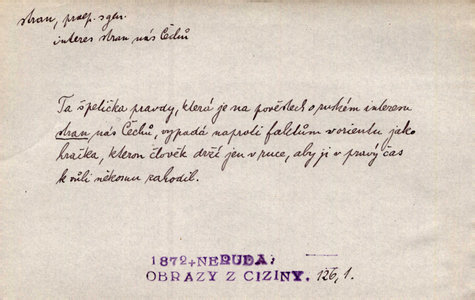 stran, praep. s gen.
interes stran nás Čechů
Ta špetička pravdy, která je na pověstech o ruském interesu
stran nás Čechů, vypadá naproti faktům v orientu jako
hračka, kterou člověk drží jen v ruce, aby ji v pravý čas
k vůli někomu zahodil.
1872+NERUDA:
OBRAZY Z CIZINY. 126, 1.